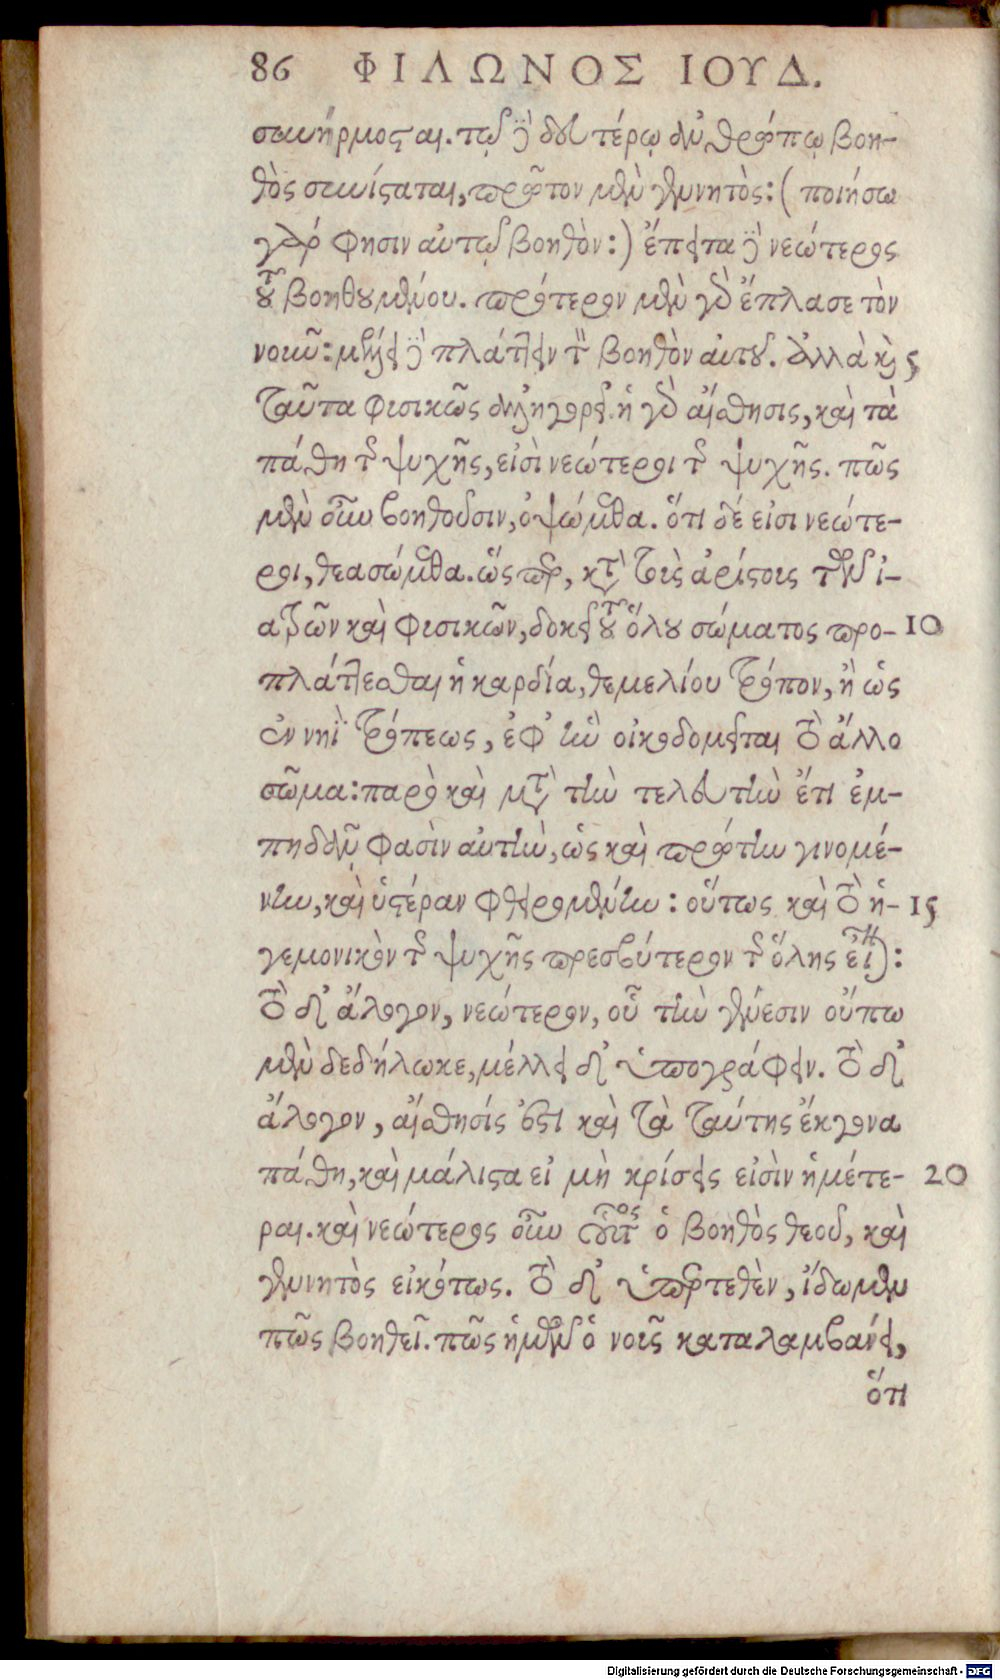 86 ΦΙΛΩΝΟΣ ΙΟΥΔ.
συνήρμοσται. τῷ δὲ δευτέρῳ ἀνθρώπῳ βοη-
θὸς συνίσταται, πρῶτον μὲν γεννητὸς: (ποιήσω
γὰρ φησιν αὐτῷ βοηθὸν:) ἔπειτα δὲ νεώτερος
τοῦ βοηθουμένου. πρότερον μὲν γὰρ ἔπλασε τὸν
νοῦν: μέλλει δὲ πλάττειν τὸν βοηθὸν αὐτοῦ. ἀλλὰ καὶ 5
ταῦτα φυσικῶς ἀλληγορεῖ. ἡ γὰρ αἴσθησις, καὶ τὰ
πάθη τῆς ψυχῆς, εἰσὶ νεώτεροι τῆς ψυχῆς. πῶς
μὲν οὖν βοηθοῦσιν, ὀψώμεθα. ὅτι δέ εἰσι νεώτε-
ροι, θεασώμεθα. ὥσπερ, κατὰ τοὺς ἀρίστους τῶν ἰ-
ατρῶν καὶ φυσικῶν, δοκεῖ τοῦ ὅλου σώματος προ- 10
πλάττεσθαι ἡ καρδία, θεμελίου τρόπον, ἢ ὡς
ἐν νηῒ τρόπεως, ἐφ᾽ ἣν οἰκοδομεῖται τὸ ἄλλο
σῶμα: παρὸ καὶ μετὰ τὴν τελευτὴν ἔτι ἐμ-
πηδᾶν φασὶν αὐτὴν, ὡς καὶ πρώτην γινομέ-
νην, καὶ ὑστέραν φθειρομένην: οὕτως καὶ τὸ ἡ- 15
γεμονικὸν τῆς ψυχῆς πρεσβύτερον τῆς ὅλης εἶναι:
τὸ δ᾽ ἄλογον, νεώτερον, οὗ τὴν γένεσιν οὔπω
μὲν δεδήλωκε, μέλλει δ᾽ ὑπογράφειν. τὸ δ᾽
ἄλογον, αἴσθησίς ἐστι καὶ τὰ ταύτης ἔκγονα
πάθη, καὶ μάλιστα εἰ μὴ κρίσεις εἰσὶν ἡμέτε- 20
ραι. καὶ νεώτερος οὖν οὗτος ὁ βοηθὸς θεοῦ, καὶ
γεννητὸς εἰκότως. τὸ δ᾽ ὑπερτεθὲν, ἴδωμεν
πῶς βοηθεῖ. πῶς ἡμῶν ὁ νοῦς καταλαμβάνει,
ὅτι
Digitalisierung gefördert durch die Deutsche Forschungsgemeinschaft - DFG